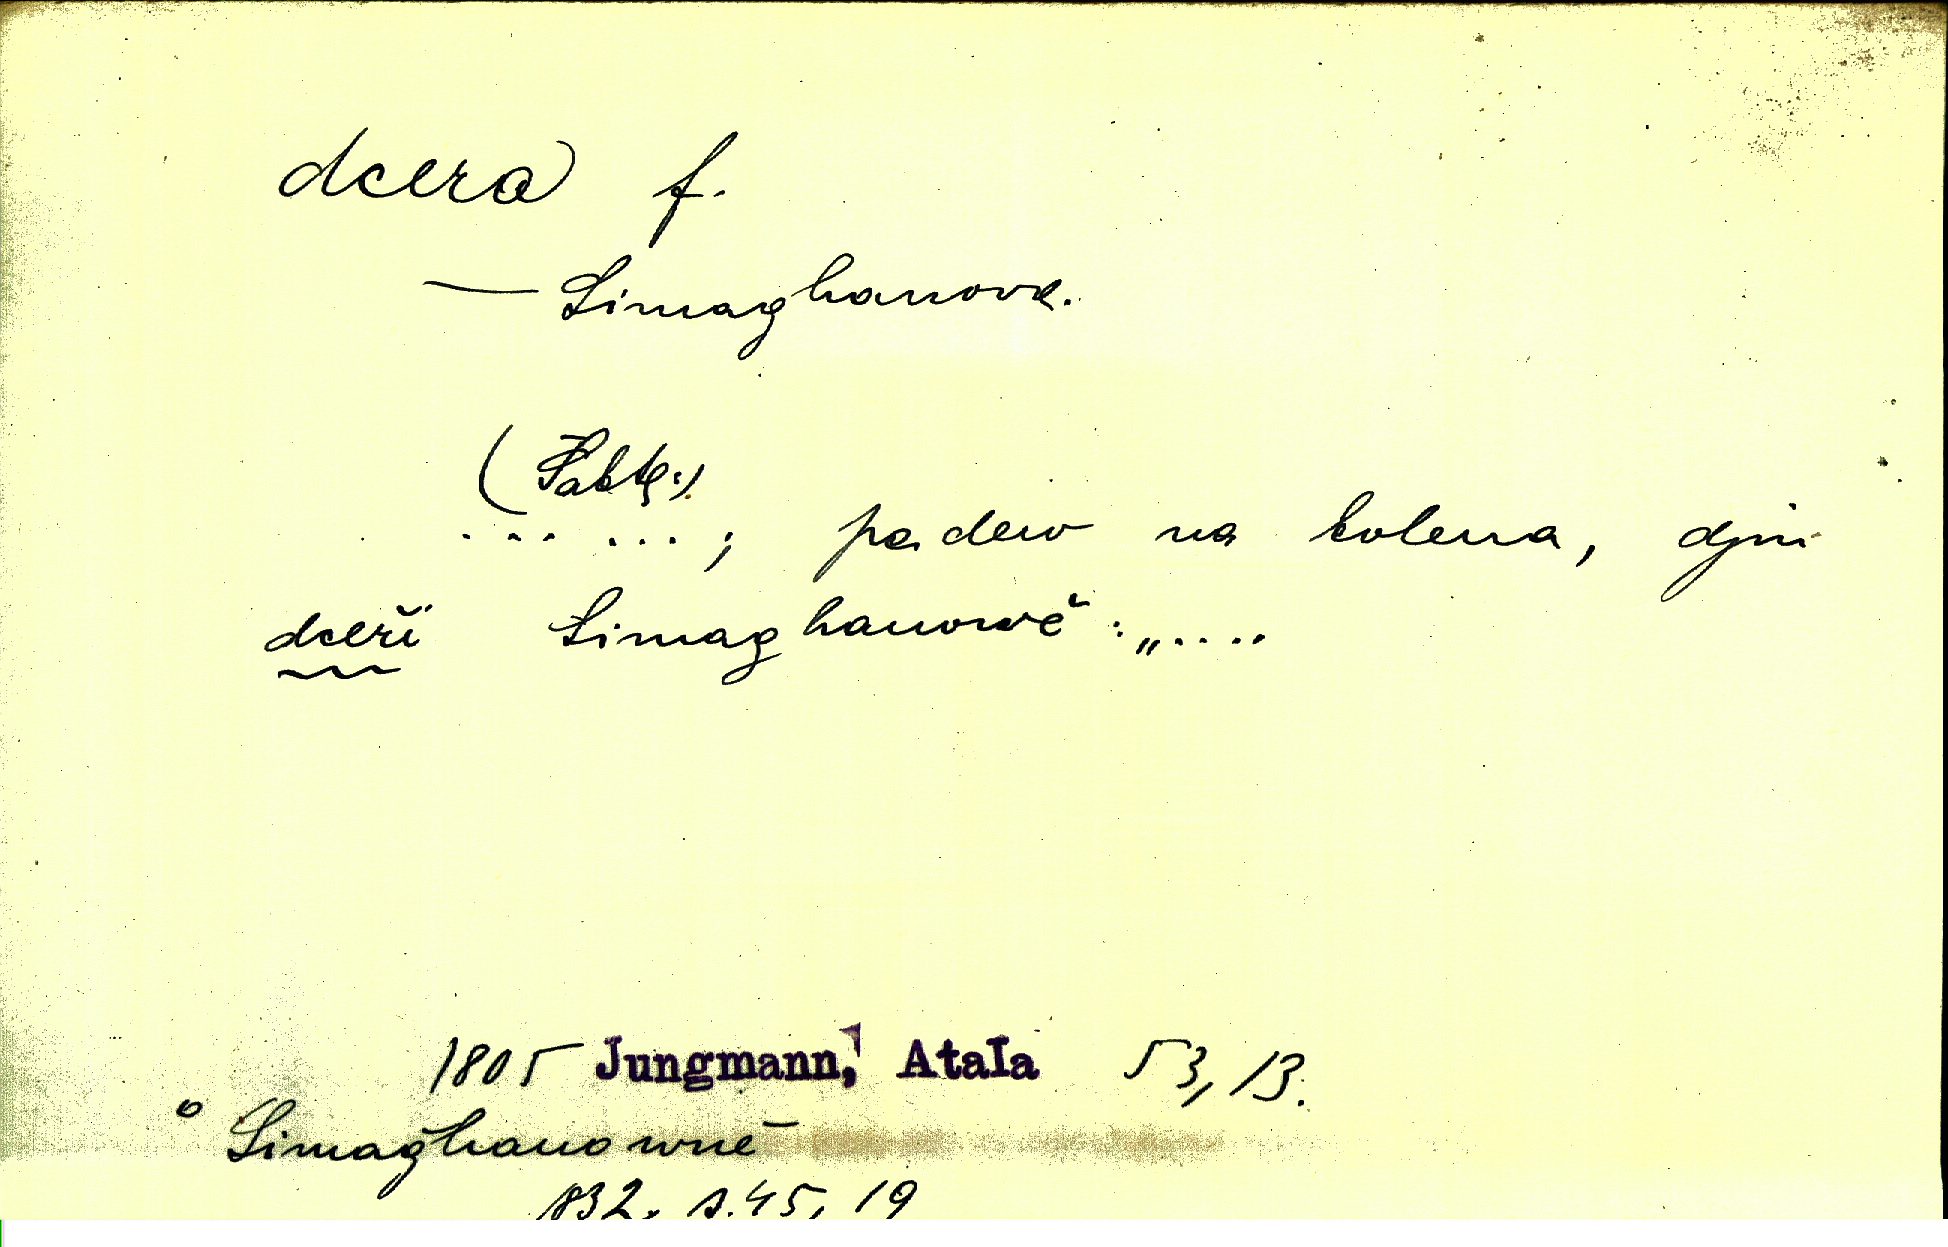 dcera f.
— Simaghanova.
(Šakta:)
... ...; padew na kolena, djm
dceři Simaghanowě: „....
1805 Jungmann, Atala 53, 13.
° Simaghanowně
832. s. 45, 19